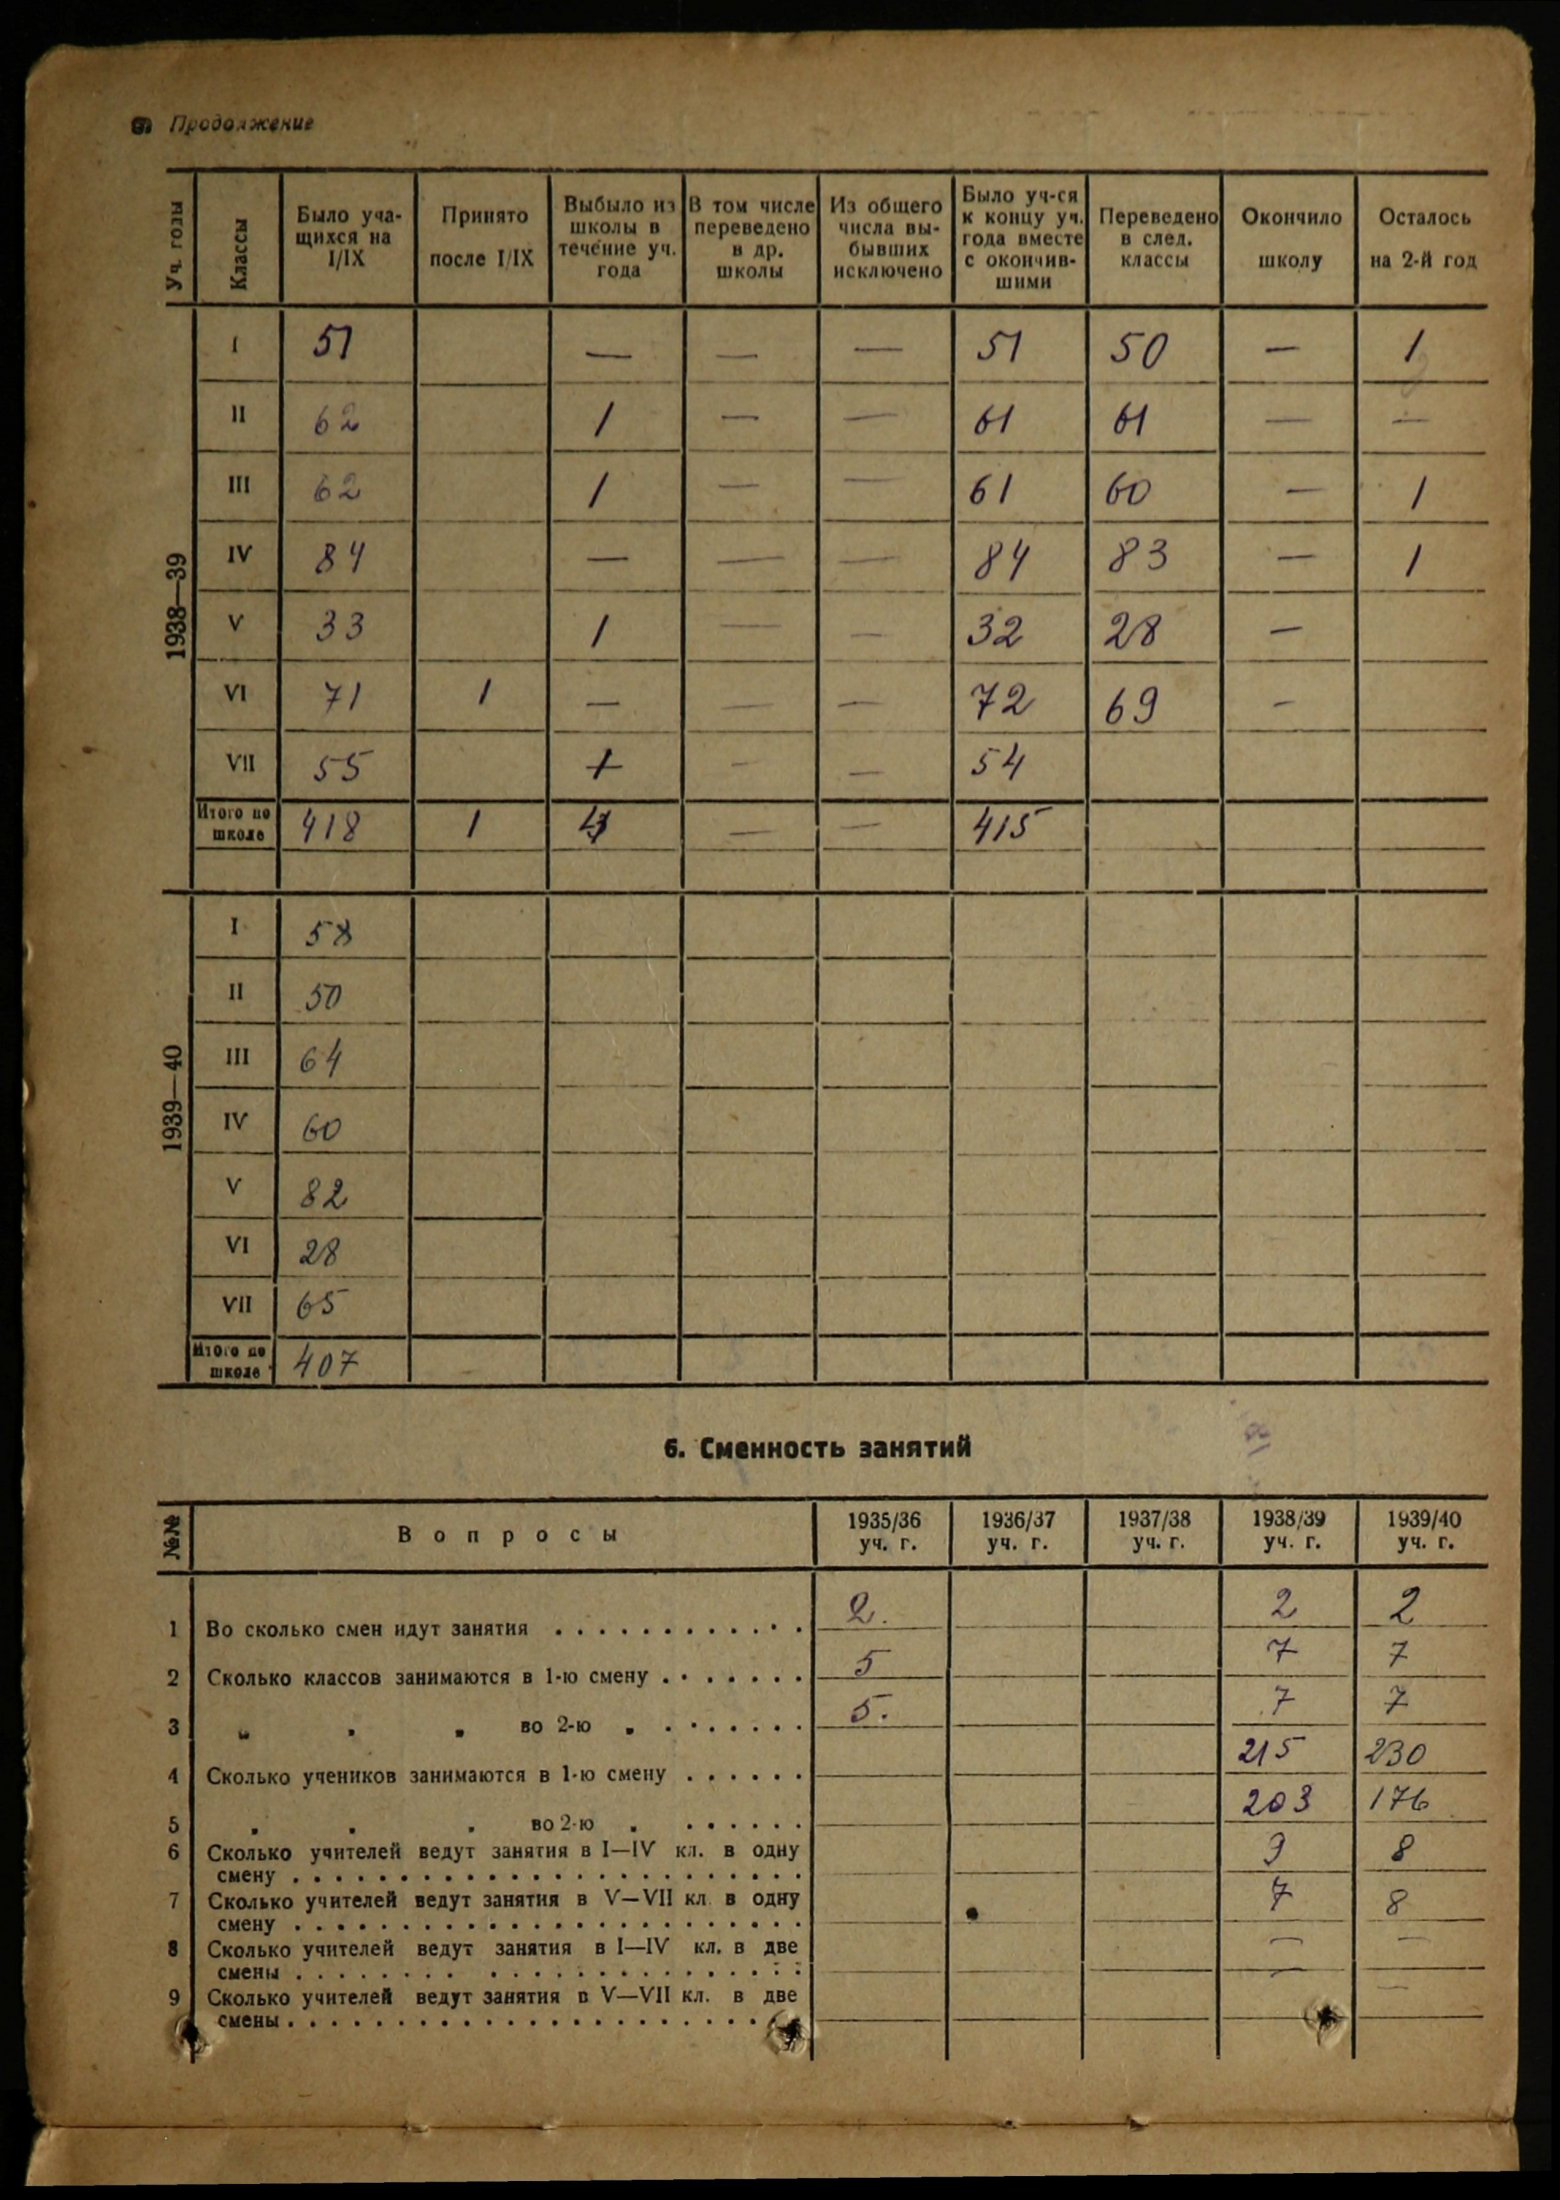 Продолжение
Уч. годы | Классы | Было учащихся на I/IX | Принято после I/IX | Выбыло из школы в течение уч. года | В том числе переведено в др. школы | Из общего числа выбывших исключено | Было уч-ся к концу уч. года вместе с окончившими | Переведено в след. классы | Окончило школу | Осталось на 2-й год
1938—39
I | 51 | | — | — | — | 51 | 50 | — | 1
II | 62 | | 1 | — | — | 61 | 61 | — | —
III | 62 | | 1 | — | — | 61 | 60 | — | 1
IV | 84 | | — | — | — | 84 | 83 | — | 1
V | 33 | | 1 | — | — | 32 | 28 | —
VI | 71 | 1 | — | — | — | 72 | 69 | —
VII | 55 | | | — | — | 54
Итого по школе | 418 | 1 | | — | — | 415
1939—40
I | 58
II | 50
III | 64
IV | 60
V | 82
VI | 28
VII | 65
Итого по школе | 407
6. Сменность занятий
№№ | Вопросы | 1935/36 уч. г. | 1936/37 уч. г. | 1937/38 уч. г. | 1938/39 уч. г. | 1939/40 уч. г.
1 Во сколько смен идут занятия . . . . . . . . . . . . | 2. | | | 2 | 2
2 Сколько классов занимаются в 1-ю смену . . . . . . . | 5 | | | 7 | 7
3 „ „ „ во 2-ю „ . . . . . . . | 5. | | | 7 | 7
4 Сколько учеников занимаются в 1-ю смену . . . . . . | | | | 215 | 230
5 „ „ „ во 2-ю „ . . . . . . | | | | 203 | 176
6 Сколько учителей ведут занятия в I—IV кл. в одну
смену . . . . . . . . . . . . . . . . . . . . . . . | | | | 9 | 8
7 Сколько учителей ведут занятия в V—VII кл. в одну
смену . . . . . . . . . . . . . . . . . . . . . . . | | | | 7 | 8
8 Сколько учителей ведут занятия в I—IV кл. в две
смены . . . . . . . . . . . . . . . . . . . . . . . | | | | — | —
9 Сколько учителей ведут занятия в V—VII кл. в две
смены . . . . . . . . . . . . . . . . . . . . . . . | | | | — | —